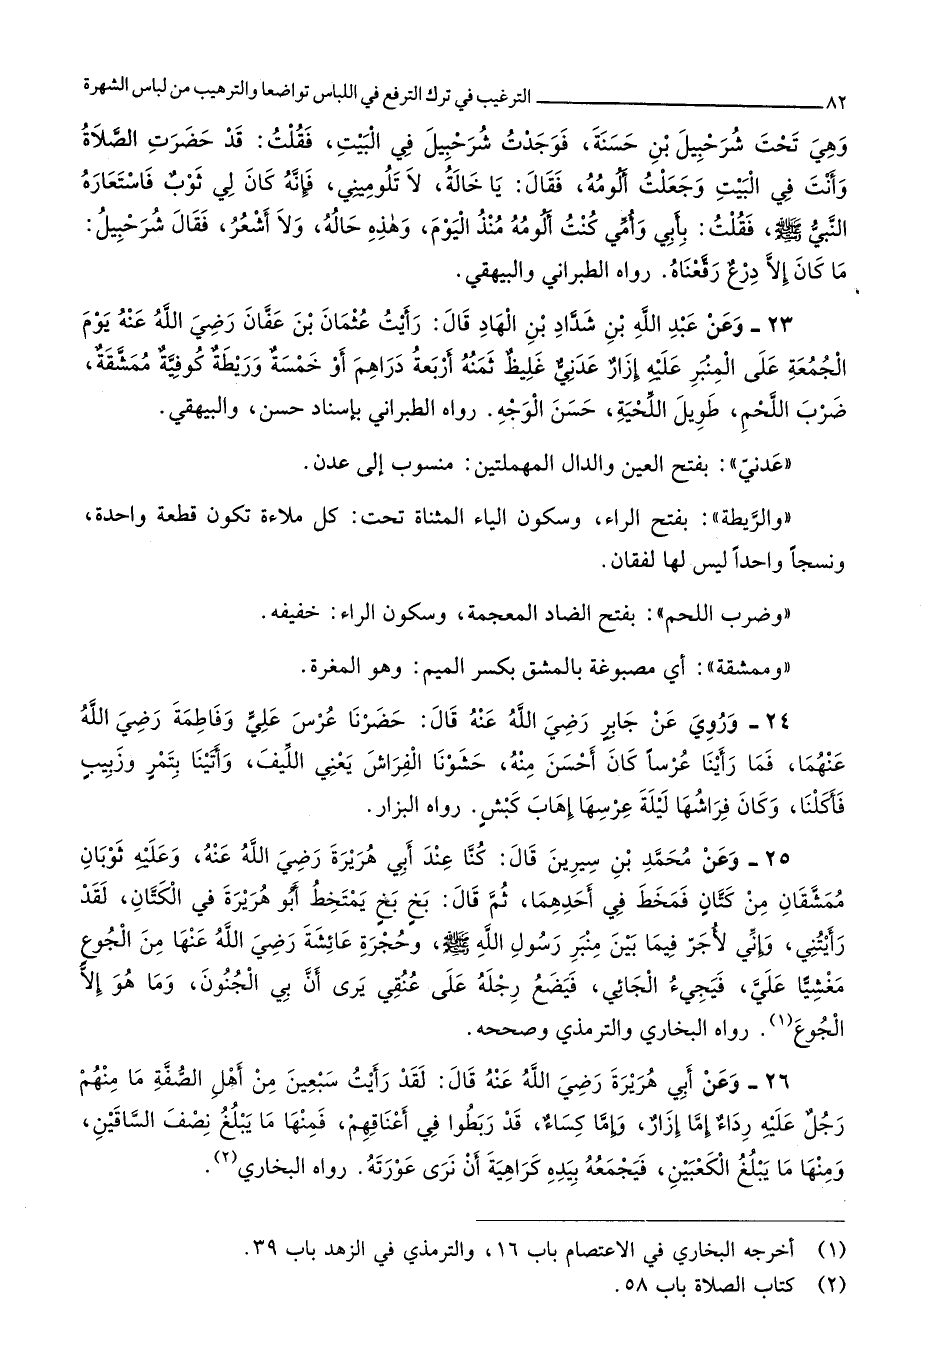 ٨٢ ــــــــــ الترغيب في ترك الترفع في اللباس تواضعا والترهيب من لباس الشهرة
وَهِيَ تَحْتَ شُرَحْبِيلَ بْنِ حَسَنَةَ، فَوَجَدْتُ شُرَحْبِيلَ فِي الْبَيْتِ، فَقُلْتُ: قَدْ حَضَرَتِ الصَّلَاةُ
وَأَنْتَ فِي الْبَيْتِ وَجَعَلْتُ أَلُومُهُ، فَقَالَ: يَا خَالَةُ، لَا تَلُومِينِي، فَإِنَّهُ كَانَ لِي ثَوْبٌ فَاسْتَعَارَهُ
النَّبِيُّ ﷺ، فَقُلْتُ: بِأَبِي وَأُمِّي كُنْتُ أَلُومُهُ مُنْذُ الْيَوْمَ، وَهٰذِهِ حَالُهُ، وَلَا أَشْعُرُ، فَقَالَ شُرَحْبِيلُ:
مَا كَانَ إِلاَّ دِرْعٌ رَقَّعْنَاهُ. رواه الطبراني والبيهقي.
٢٣ ـ وَعَنْ عَبْدِ اللَّهِ بْنِ شَدَّادِ بْنِ الْهَادِ قَالَ: رَأَيْتُ عُثْمَانَ بْنَ عَفَّانَ رَضِيَ اللَّهُ عَنْهُ يَوْمَ
الْجُمُعَةِ عَلَى الْمِنْبَرِ عَلَيْهِ إِزَارٌ عَدَنِيٌّ غَلِيظٌ ثَمَنُهُ أَرْبَعَةُ دَرَاهِمَ أَوْ خَمْسَةٌ وَرَيْطَةٌ كُوفِيَّةٌ مُمَشَّقَةٌ،
ضَرْبَ اللَّحْمِ، طَوِيلَ اللِّحْيَةِ، حَسَنَ الْوَجْهِ. رواه الطبراني بإسناد حسن، والبيهقي.
«عَدنيّ»: بفتح العين والدال المهملتين: منسوب إلى عدن.
«والرَّيطة»: بفتح الراء، وسكون الياء المثناة تحت: كل ملاءة تكون قطعة واحدة،
ونسجاً واحداً ليس لها لفقان.
«وضرب اللحم»: بفتح الضاد المعجمة، وسكون الراء: خفيفه.
«وممشقة»: أي مصبوغة بالمشق بكسر الميم: وهو المغرة.
٢٤ ـ وَرُوِيَ عَنْ جَابِرٍ رَضِيَ اللَّهُ عَنْهُ قَالَ: حَضَرْنَا عُرْسَ عَلِيٍّ وَفَاطِمَةَ رَضِيَ اللَّهُ
عَنْهُمَا، فَمَا رَأَيْنَا عُرْساً كَانَ أَحْسَنَ مِنْهُ، حَشَوْنَا الْفِرَاشَ يَعْنِي اللِّيفَ، وَأَتَيْنَا بِتَمْرٍ وَزَبِيبٍ
فَأَكَلْنَا، وَكَانَ فِرَاشُهَا لَيْلَةَ عِرْسِهَا إِهَابَ كَبْشٍ. رواه البزار.
٢٥ ـ وَعَنْ مُحَمَّدِ بْنِ سِيرِينَ قَالَ: كُنَّا عِنْدَ أَبِي هُرَيْرَةَ رَضِيَ اللَّهُ عَنْهُ، وَعَلَيْهِ ثَوْبَانِ
مُمَشَّقَانِ مِنْ كَتَّانٍ فَمَخَطَ فِي أَحَدِهِمَا، ثُمَّ قَالَ: بَخٍ بَخٍ يَمْتَخِطُ أَبُو هُرَيْرَةَ في الْكَتَّانِ، لَقَدْ
رَأَيْتُنِي، وَإِنِّي لأُجَرّ فِيمَا بَيْنَ مِنْبَرِ رَسُولِ اللَّهِ ﷺ، وحُجْرَةِ عَائِشَةَ رَضِيَ اللَّهُ عَنْهَا مِنَ الْجُوعِ
مَغْشِيًّا عَلَيَّ، فَيَجِيءُ الْجَائِي، فَيَضَعُ رِجْلَهُ عَلَى عُنُقِي يَرى أَنَّ بِي الْجُنُونَ، وَمَا هُوَ إِلاَّ
الْجُوعَ(١). رواه البخاري والترمذي وصححه.
٢٦ ـ وَعَنْ أَبِي هُرَيْرَةَ رَضِيَ اللَّهُ عَنْهُ قَالَ: لَقَدْ رَأَيْتُ سَبْعِينَ مِنْ أَهْلِ الصُّفَّةِ مَا مِنْهُمْ
رَجُلٌ عَلَيْهِ رِدَاءٌ إِمَّا إِزَارٌ، وَإِمَّا كِسَاءٌ، قَدْ رَبَطُوا فِي أَعْنَاقِهِمْ، فَمِنْهَا مَا يَبْلُغُ نِصْفَ السَّاقَيْنِ،
وَمِنْهَا مَا يَبْلُغُ الْكَعْبَيْنِ، فَيَجْمَعُهُ بِيَدِهِ كَرَاهِيَةَ أَنْ تَرَى عَوْرَتَهُ. رواه البخاري(٢).
(١) أخرجه البخاري في الاعتصام باب ١٦، والترمذي في الزهد باب ٣٩.
(٢) كتاب الصلاة باب ٥٨.